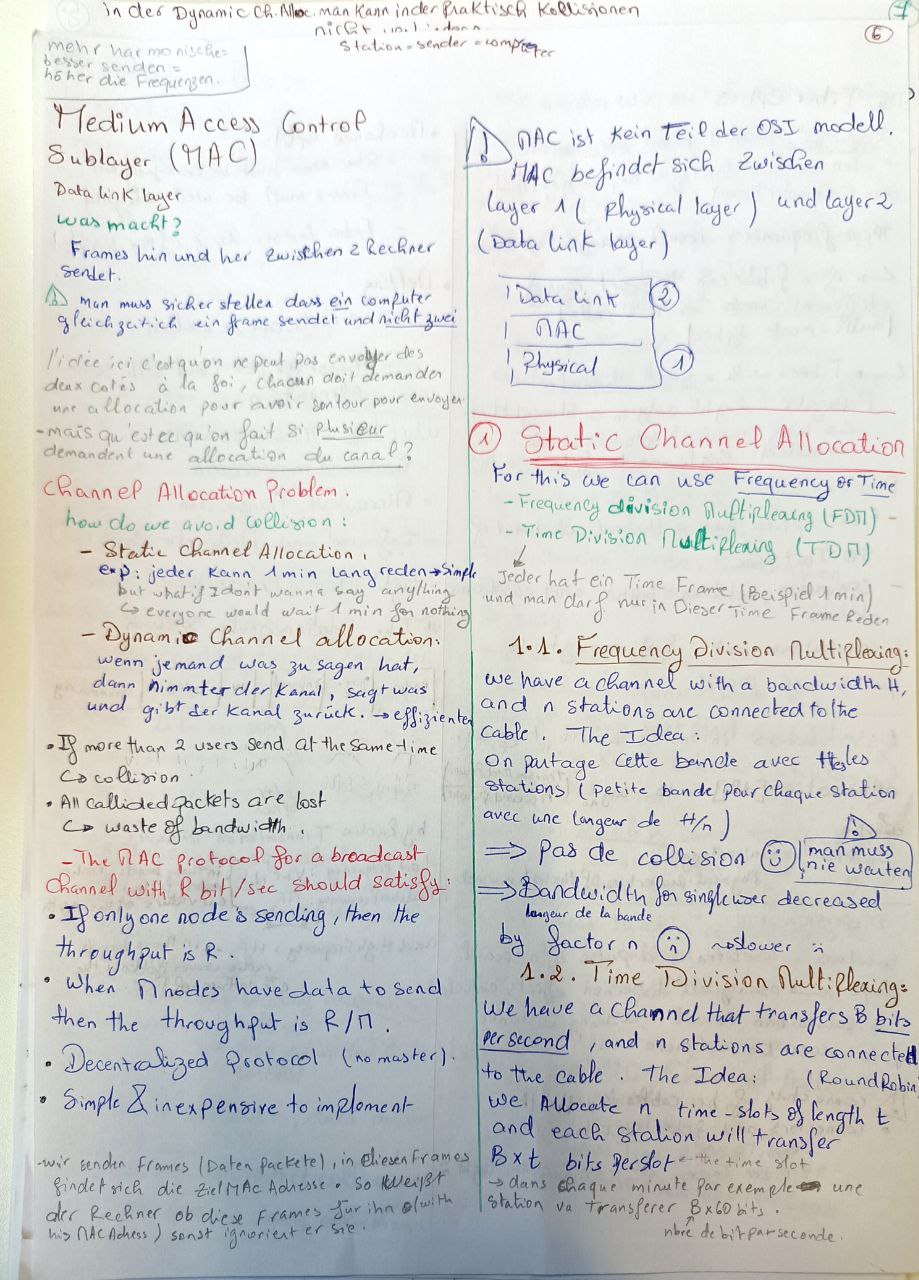 in der Dynamic Ch. Alloc. man kann in der Praktisch Kollisionen
nicht
station = sender = computer
6
mehr harmonische =
besser senden =
höher die Frequenzen.
Medium Access Control
Sublayer (MAC)
Data link layer
was macht?
Frames hin und her zwischen 2 Rechner
sendet.
Man muss sicher stellen dass ein computer
gleichzeitich ein frame sendet und nicht zwei
l'idée ici c'est qu'on ne peut pas envoyer des
deux cotés à la foi, chacun doit demander
une allocation pour avoir son tour pour envoyer.
- mais qu'est ce qu'on fait si plusieur
demandent une allocation du canal?
Channel Allocation Problem.
how do we avoid collision :
- Static Channel Allocation.
exp: jeder kann 1 min lang reden → simple
but what if I dont wanna say anything
↳ everyone would wait 1 min for nothing
- Dynamic Channel allocation:
wenn jemand was zu sagen hat,
dann nimmt er der Kanal, sagt was
und gibt der Kanal zurück. → effizienter
• If more than 2 users send at the same time
↳ collision
• All callided packets are lost
↳ waste of bandwidth.
- The MAC protocol for a broadcast
channel with R bit/sec should satisfy:
• If only one node is sending, then the
throughput is R.
• When M nodes have data to send
then the throughput is R/M.
• Decentralized Protocol (no master).
• Simple & inexpensive to implement
- wir senden Frames (Daten packete), in diesen Frames
findet sich die Ziel MAC Adresse. So weißt
der Rechner ob diese Frames für ihn (with
his MAC Adress) sonst ignoriert er sie.
! MAC ist Kein Teil der OSI modell.
MAC befindet sich zwischen
layer 1 (Physical layer) und layer 2
(Data link layer)
Data link 2
MAC
Physical 1
1 Static Channel Allocation
For this we can use Frequency or Time
- Frequency division Multiplexing (FDM) -
- Time Division Multiplexing (TDM)
Jeder hat ein Time Frame (Beispiel 1 min)
und man darf nur in Dieser Time Frame Reden
1.1. Frequency Division Multiplexing:
we have a channel with a bandwidth H,
and n stations are connected to the
cable. The Idea:
on partage cette bande avec les
stations (petite bande pour chaque station
avec une longeur de H/n)
⇒ pas de collision ☺ man muss
nie warten
⇒ Bandwidth for single user decreased
longeur de la bande
by factor n ☹ ~slower :
1.2. Time Division Multiplexing:
we have a channel that transfers B bits
per second, and n stations are connected
to the cable. The Idea: (Round Robin
we Allocate n time-slots of length t
and each station will transfer
B x t bits per slot ← the time slot
→ dans chaque minute par exemple une
station va transferer B x 60 bits.
nbre de bit par seconde.